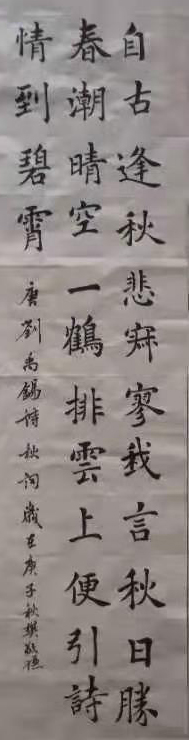 自古逢秋悲寂寥我言秋日勝
春潮晴空一鶴排雲上便引詩
情到碧霄
唐劉禹錫詩秋詞歲在庚子秋